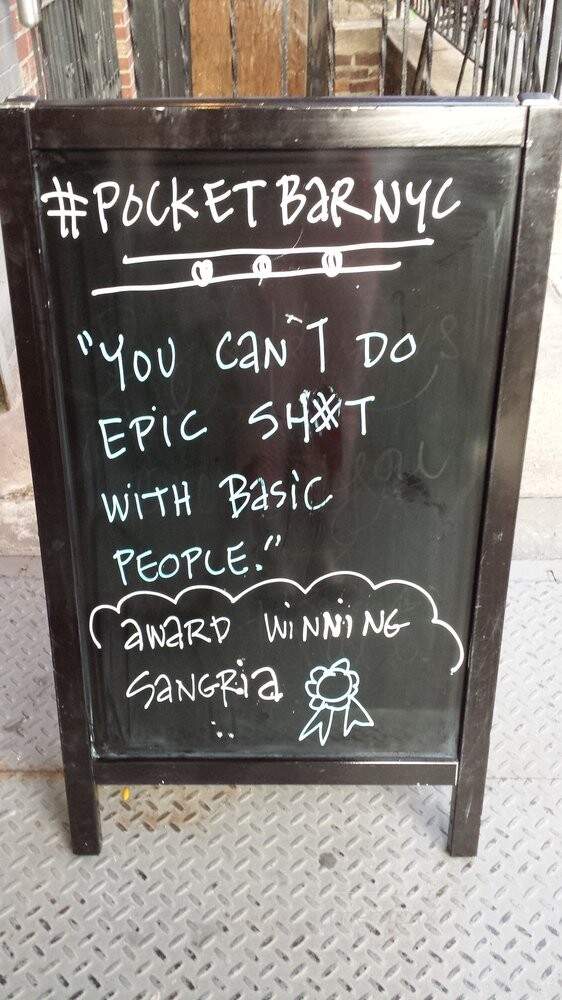 #POCKET BAR NYC
"YOU CAN'T DO
EPIC SH#T
WITH BASIC
PEOPLE."
AWARD WINNING
SANGRIA